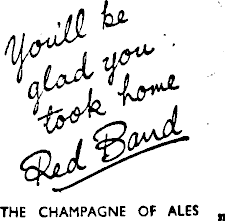 You'll be
glad you
took home
Red Band
THE CHAMPAGNE OF ALES